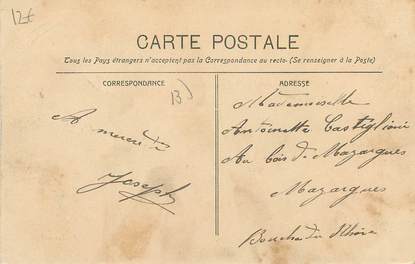 12€
CARTE POSTALE
Tous les Pays étrangers n'acceptent pas la Correspondance au recto. (Se renseigner à la Poste)
CORRESPONDANCE
ADRESSE
13
A mercredi
Joseph
Mademoiselle
Antoinette Castiglioni
Au bois de Mazargues
Mazargues
Bouches du Rhône